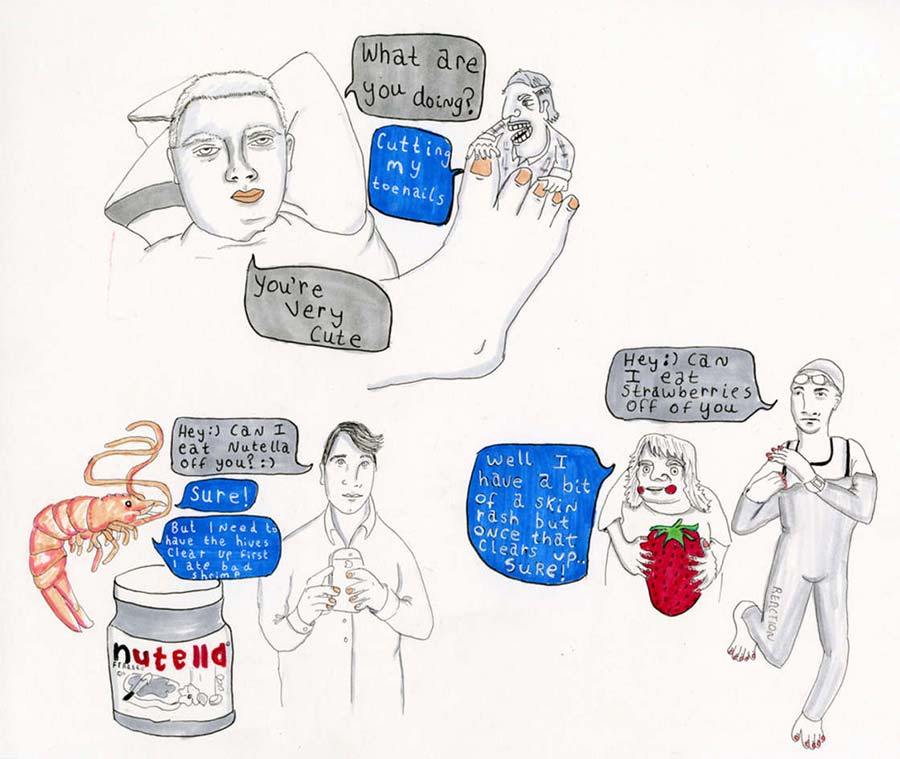 What are
you doing?
Cutting
my
toenails
you're
very
cute
Hey:) Can I
eat Nutella
off you?:)
Sure!
But I need to
have the hives
clear up first
I ate bad
shrimp
nutella
Hey:) Can
I eat
Strawberries
off of you
Well I
have a bit
of a skin
rash but
once that
clears up..
Sure!
REACTION